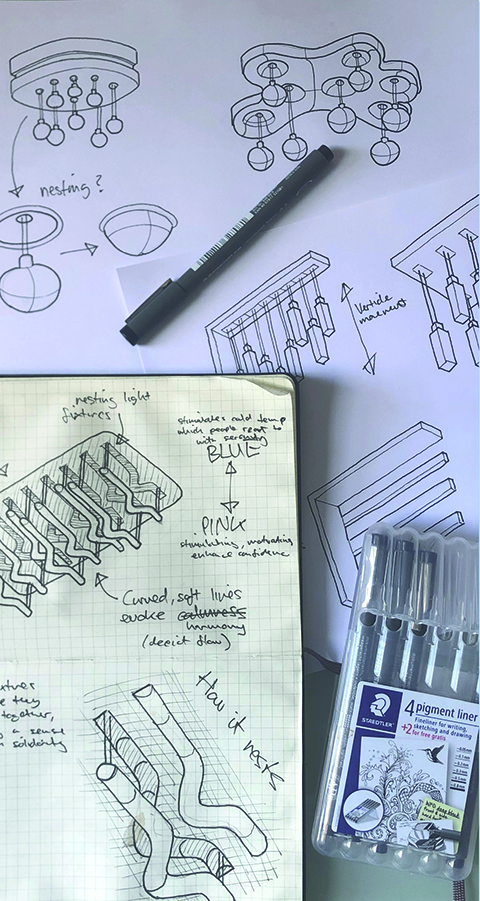 nesting?
Verticle
movement
nesting light
fixtures
stimulates cold temp
which people react to
with serenity
BLUE
PINK
stimulating, motivating
enhance confidence
Curved, soft lines
evoke calmness
harmony
(depict flow)
together,
a sense
solidarity
How it nests
STAEDTLER
4 pigment liner
Fineliner for writing,
sketching and drawing
+2
for free gratis